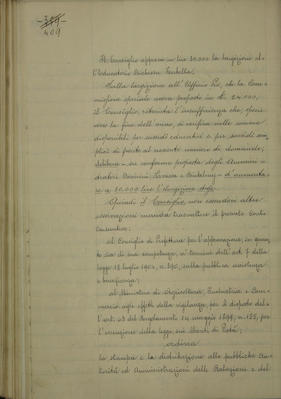 409
Il Consiglio approva in lire 30.000 la largizione al-
l'Educatorio Duchessa
Sulla largizione all'Ufficio Pio, che la Com-
missione speciale aveva proposta in L. 24.000,
il Consiglio, ritenuta l'insufficienza che, spe
verso la fine dell'anno, si verifica nelle somme
disponibili per sussidi educativi e per sussidi
di fronte al numero di domande,
delibera su conforme proposta degli Ammini-
stratori e d'aumenta-
re a 30.000 lire l'elargizione
Quindi il Consiglio, non essendovi altre
osservazioni manda trasmettere il presente Conto
Consuntivo:
al Consiglio di Prefettura per l'approvazione, in quan-
to sia di sua competenza, a termini dell'art. 7 della
legge 18 luglio 1904, n. 390, sulla pubblica assistenza
e beneficenza;
al Ministero di Agricoltura, Industria e Com-
mercio agli effetti della vigilanza, per il disposto del-
l'art. del Regolamento 14 maggio 1899, n. 185, per
l'esecuzione della legge sui Monti di Pietà;
ordina
la stampa e la distribuzione alle pubbliche Au-
torità ed Amministrazioni della Relazione e del